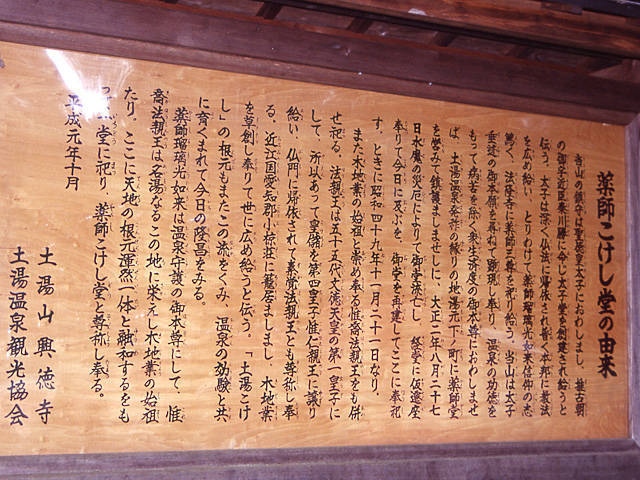 薬師こけし堂の由来
当山の鎮守は聖徳皇太子におわしまし、推古朝
の御字近臣秦川勝に命じ太子堂を創建され給うと
伝う。太子は深く仏法に帰依され普く本邦に教法
を広め給い、とりわけて薬師瑠璃光如来信仰の志
篤く、法隆寺に薬師三尊を祀り給う。当山は太子
垂迹の御本願を尋ねて勧現し奉り、温泉の功徳を
もって病苦を除く救生済度の御本尊におわしませ
ば、土湯温泉発祥の縁りの地湯元下ノ町に薬師堂
を営みて鎮護ましませしに、大正二年八月二十七
日水魔の災厄によりて御堂流亡し、経堂に仮遷座
奉りて今日に及ぶを、御堂を再建してここに奉祀
す。ときに昭和四十九年十一月二十一日なり。
また木地業の始祖と崇め奉る惟喬法親王をも併
せ祀る。法親王は五十五代文徳天皇の第一皇子に
して、所以あって皇儲を第四皇子惟仁親王に譲り
給い、仏門に帰依されて素覚法親王とも尊称し奉
る。近江国愛知郡小椋荘に蟄居ましまし、木地業
を草創し奉りて世に広め給うと伝う。「土湯こけ
し」の根元もまたこの流をくみ、温泉の効験と共
に育くまれて今日の隆昌をみる。
薬師瑠璃光如来は温泉守護の御本尊にして、惟
喬法親王は名湯なるこの地に栄えし木地業の始祖
たり。ここに天地の根元渾然一体と融和するをも
って 堂に祀り、薬師こけし堂と尊称し奉る。
平成元年十月
土湯山興徳寺
土湯温泉観光協会